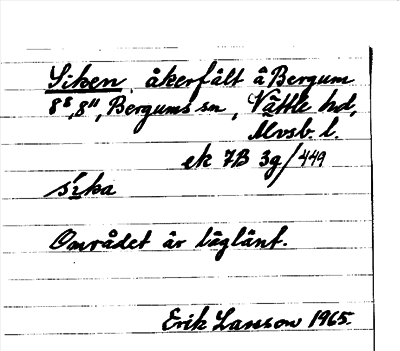 Siken, åkerfält å Bergum
8⁸, 8¹¹, Bergums sn, Vättle hd,
Älvsb. l.
ek 7B 3g/449
sika
Området är låglänt.
Erik Larsson 1965.